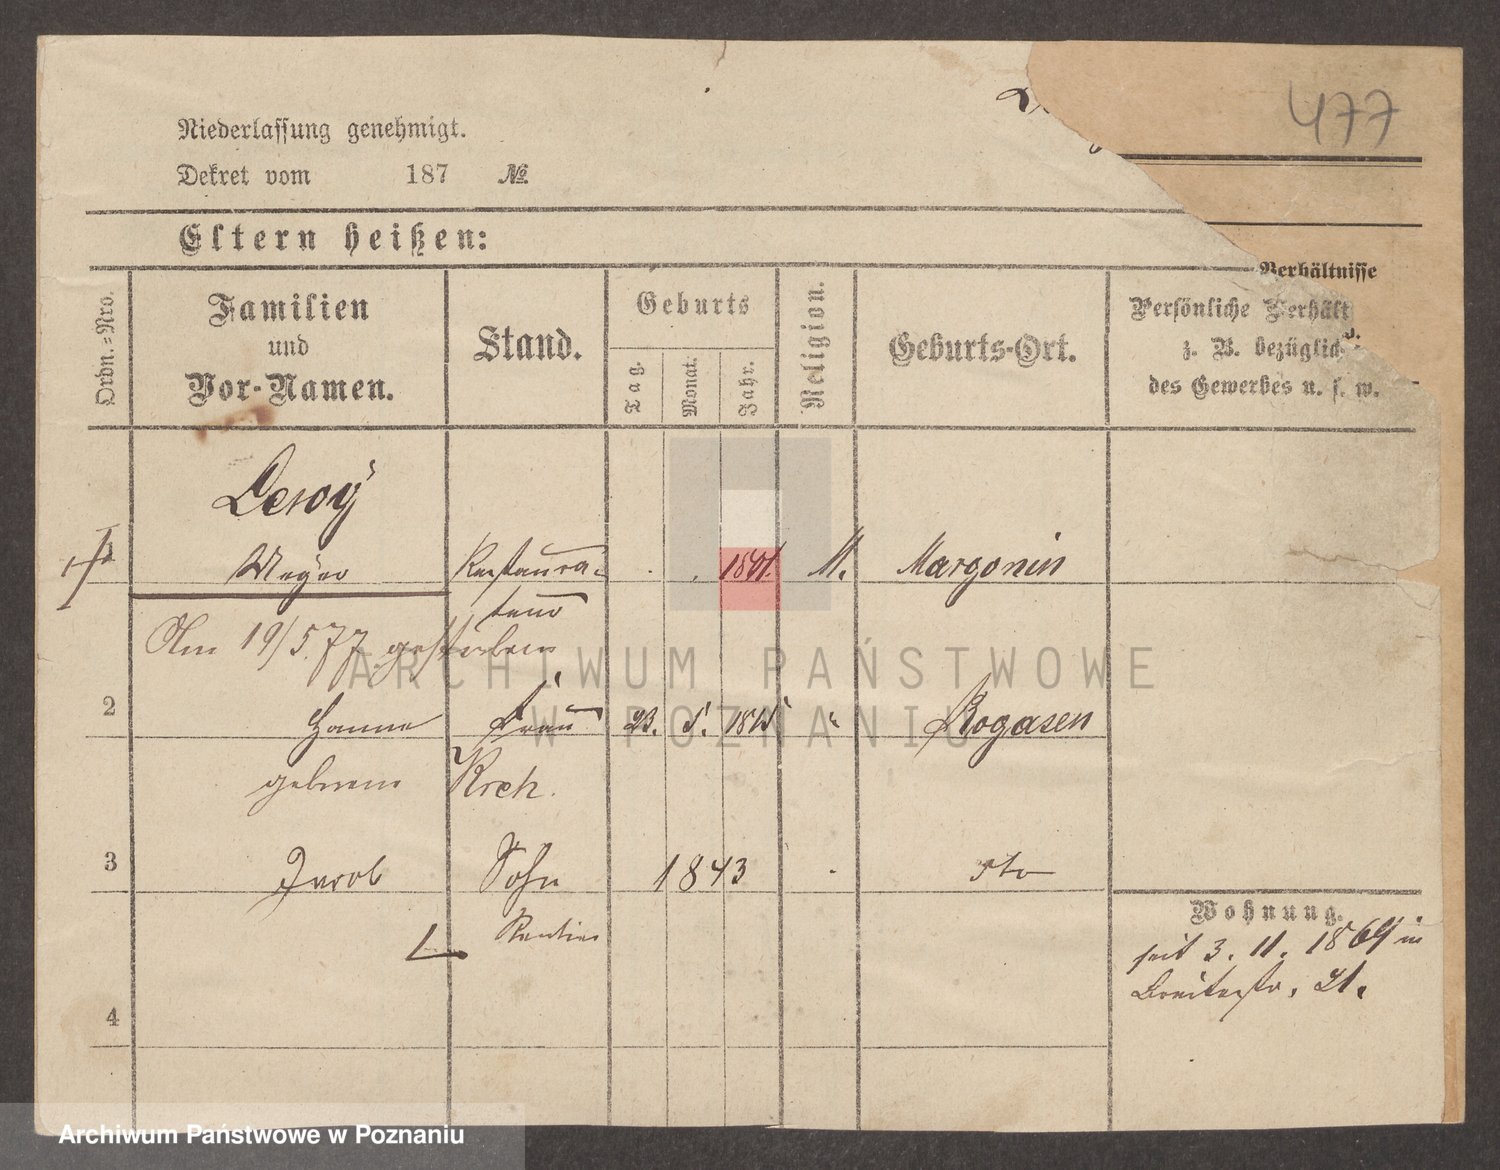 477
Niederlassung genehmigt.
Dekret vom 187 №
Eltern heißen:
Verhältnisse
Ordn.=Nro.
Familien
und
Vor-Namen.
Stand.
Geburts
Tag.
Monat.
Jahr.
Religion.
Geburts-Ort.
Persönliche Verhält
z. B. bezüglich
des Gewerbes u. s. w.
1 Meyer Restaura- M. Margonin
teur
Am 19/5.77 gestorben
ARCHIWUM PAŃSTWOWE
W POZNANIU
2 Hanne Frau 23. 5. 1815 " Rogasen
geborne
3 Jacob Sohn 1843 dto
Rentier
Wohnung.
seit 3. 11. 1869 in
Breitestr. 21.
4
Archiwum Państwowe w Poznaniu